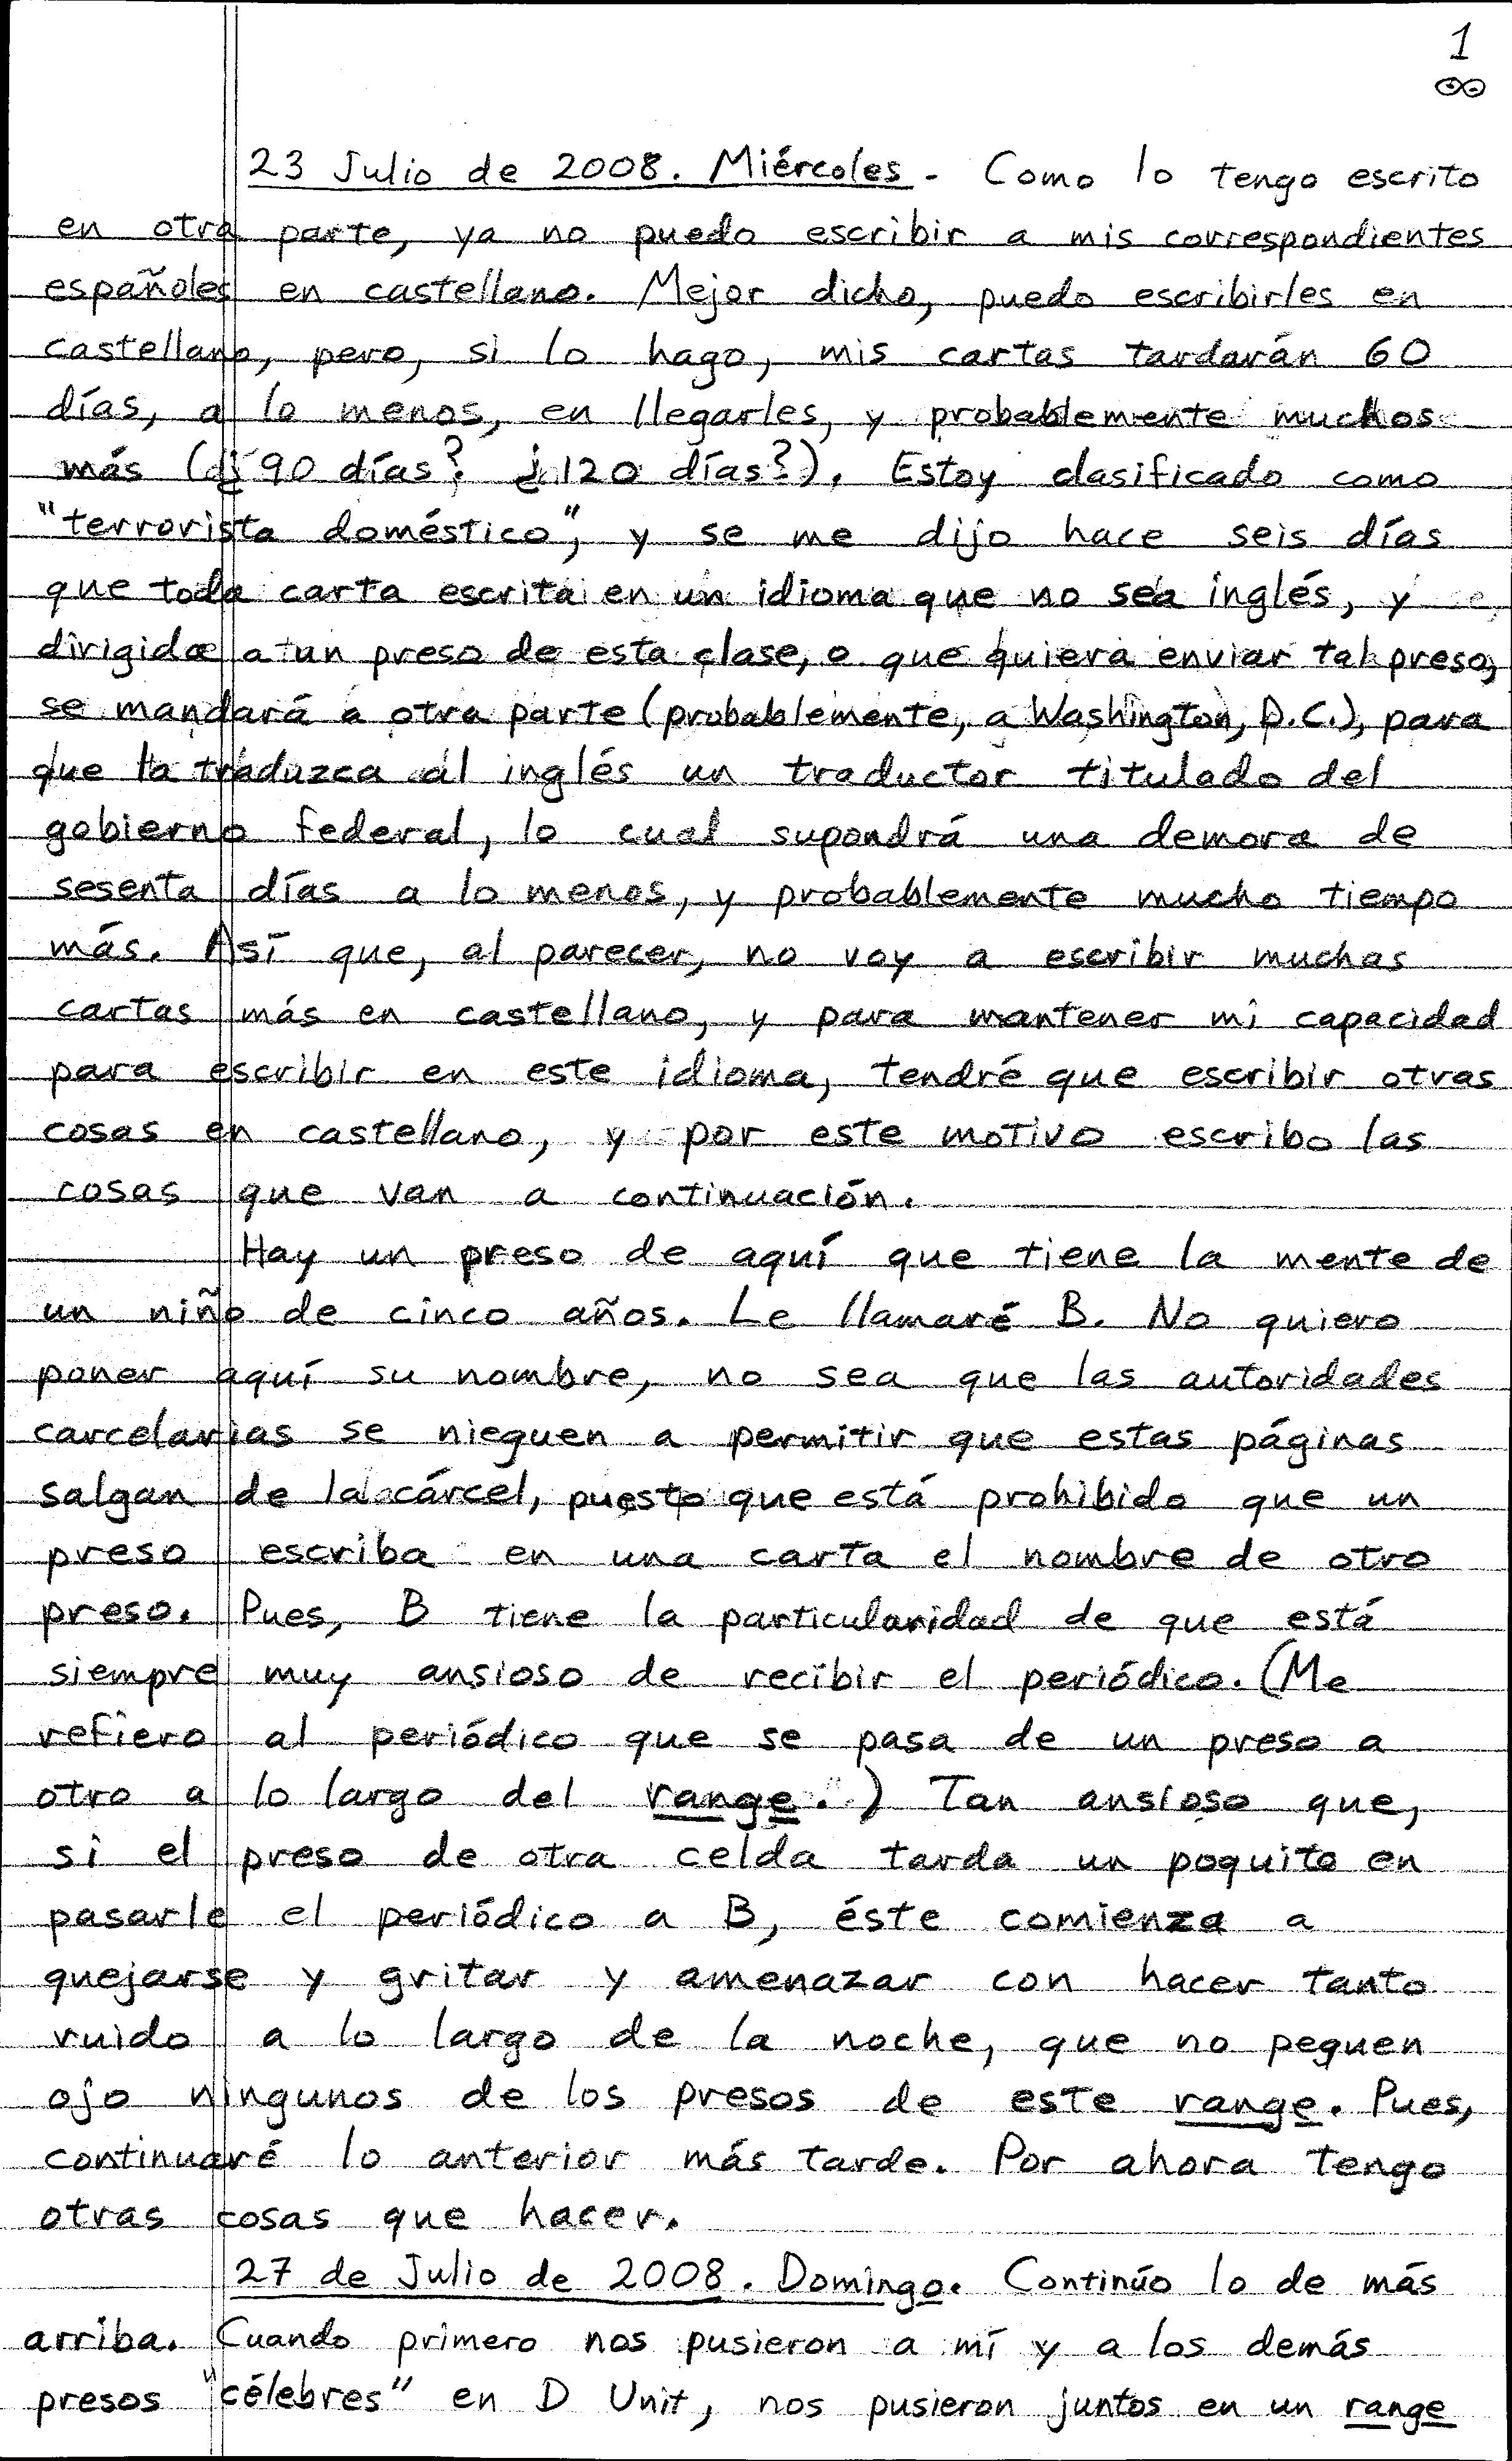 1
∞
23 Julio de 2008. Miércoles. Como lo tengo escrito
en otra parte, ya no puedo escribir a mis correspondientes
españoles en castellano. Mejor dicho, puedo escribirles en
castellano, pero, si lo hago, mis cartas tardarán 60
días, a lo menos, en llegarles, y probablemente muchos
más (¿90 días? ¿120 días?). Estoy clasificado como
"terrorista doméstico", y se me dijo hace seis días
que toda carta escrita en un idioma que no sea inglés, y
dirigida a un preso de esta clase, o que quiera enviar tal preso,
se mandará a otra parte (probablemente, a Washington, D.C.), para
que la traduzca al inglés un traductor titulado del
gobierno federal, lo cual supondrá una demora de
sesenta días a lo menos, y probablemente mucho tiempo
más. Así que, al parecer, no voy a escribir muchas
cartas más en castellano, y para mantener mi capacidad
para escribir en este idioma, tendré que escribir otras
cosas en castellano, y por este motivo escribo las
cosas que van a continuación.
Hay un preso de aquí que tiene la mente de
un niño de cinco años. Le llamaré B. No quiero
poner aquí su nombre, no sea que las autoridades
carcelarias se nieguen a permitir que estas páginas
salgan de la cárcel, puesto que está prohibido que un
preso escriba en una carta el nombre de otro
preso. Pues, B tiene la particularidad de que está
siempre muy ansioso de recibir el periódico. (Me
refiero al periódico que se pasa de un preso a
otro a lo largo del range.) Tan ansioso que,
si el preso de otra celda tarda un poquito en
pasarle el periódico a B, éste comienza a
quejarse y gritar y amenazar con hacer tanto
ruido a lo largo de la noche, que no peguen
ojo ningunos de los presos de este range. Pues,
continuaré lo anterior más tarde. Por ahora tengo
otras cosas que hacer.
27 de Julio de 2008. Domingo. Continúo lo de más
arriba. Cuando primero nos pusieron a mí y a los demás
presos "célebres" en D Unit, nos pusieron juntos en un range